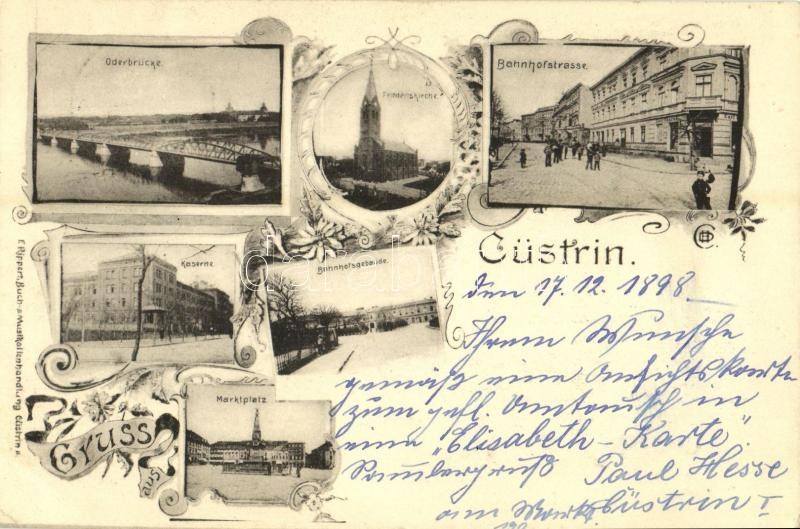 Oderbrücke.
Friedenskirche.
Bahnhofstrasse.
Kaserne.
Bahnhofsgebäude.
Marktplatz
Gruss
aus
Cüstrin.
den 17.12.1898
Ihrem Wunsche
gemäß eine Ansichtskarte
zum gefl. Umtausch in
eine "Elisabeth-Karte".
Sammlergruß Paul Hesse
am Markt Cüstrin I
Buch- & Musikalienhandlung Cüstrin
darabanth